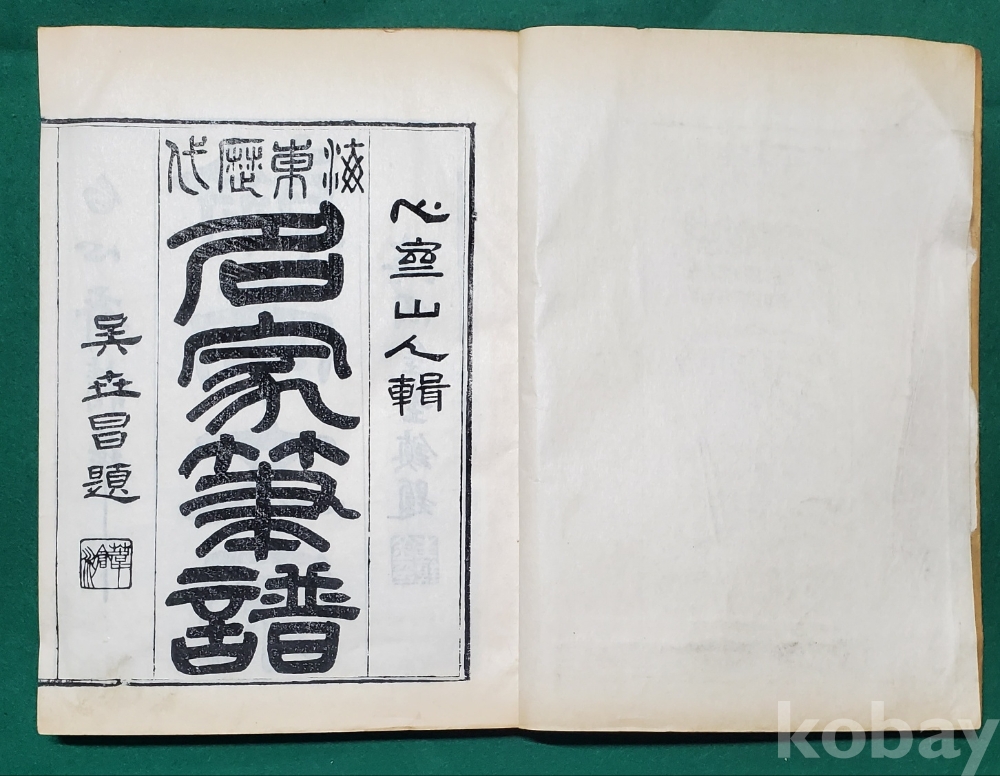 心齋山人輯
海東歷代
名家筆譜
吳世昌題
葦滄
kobay